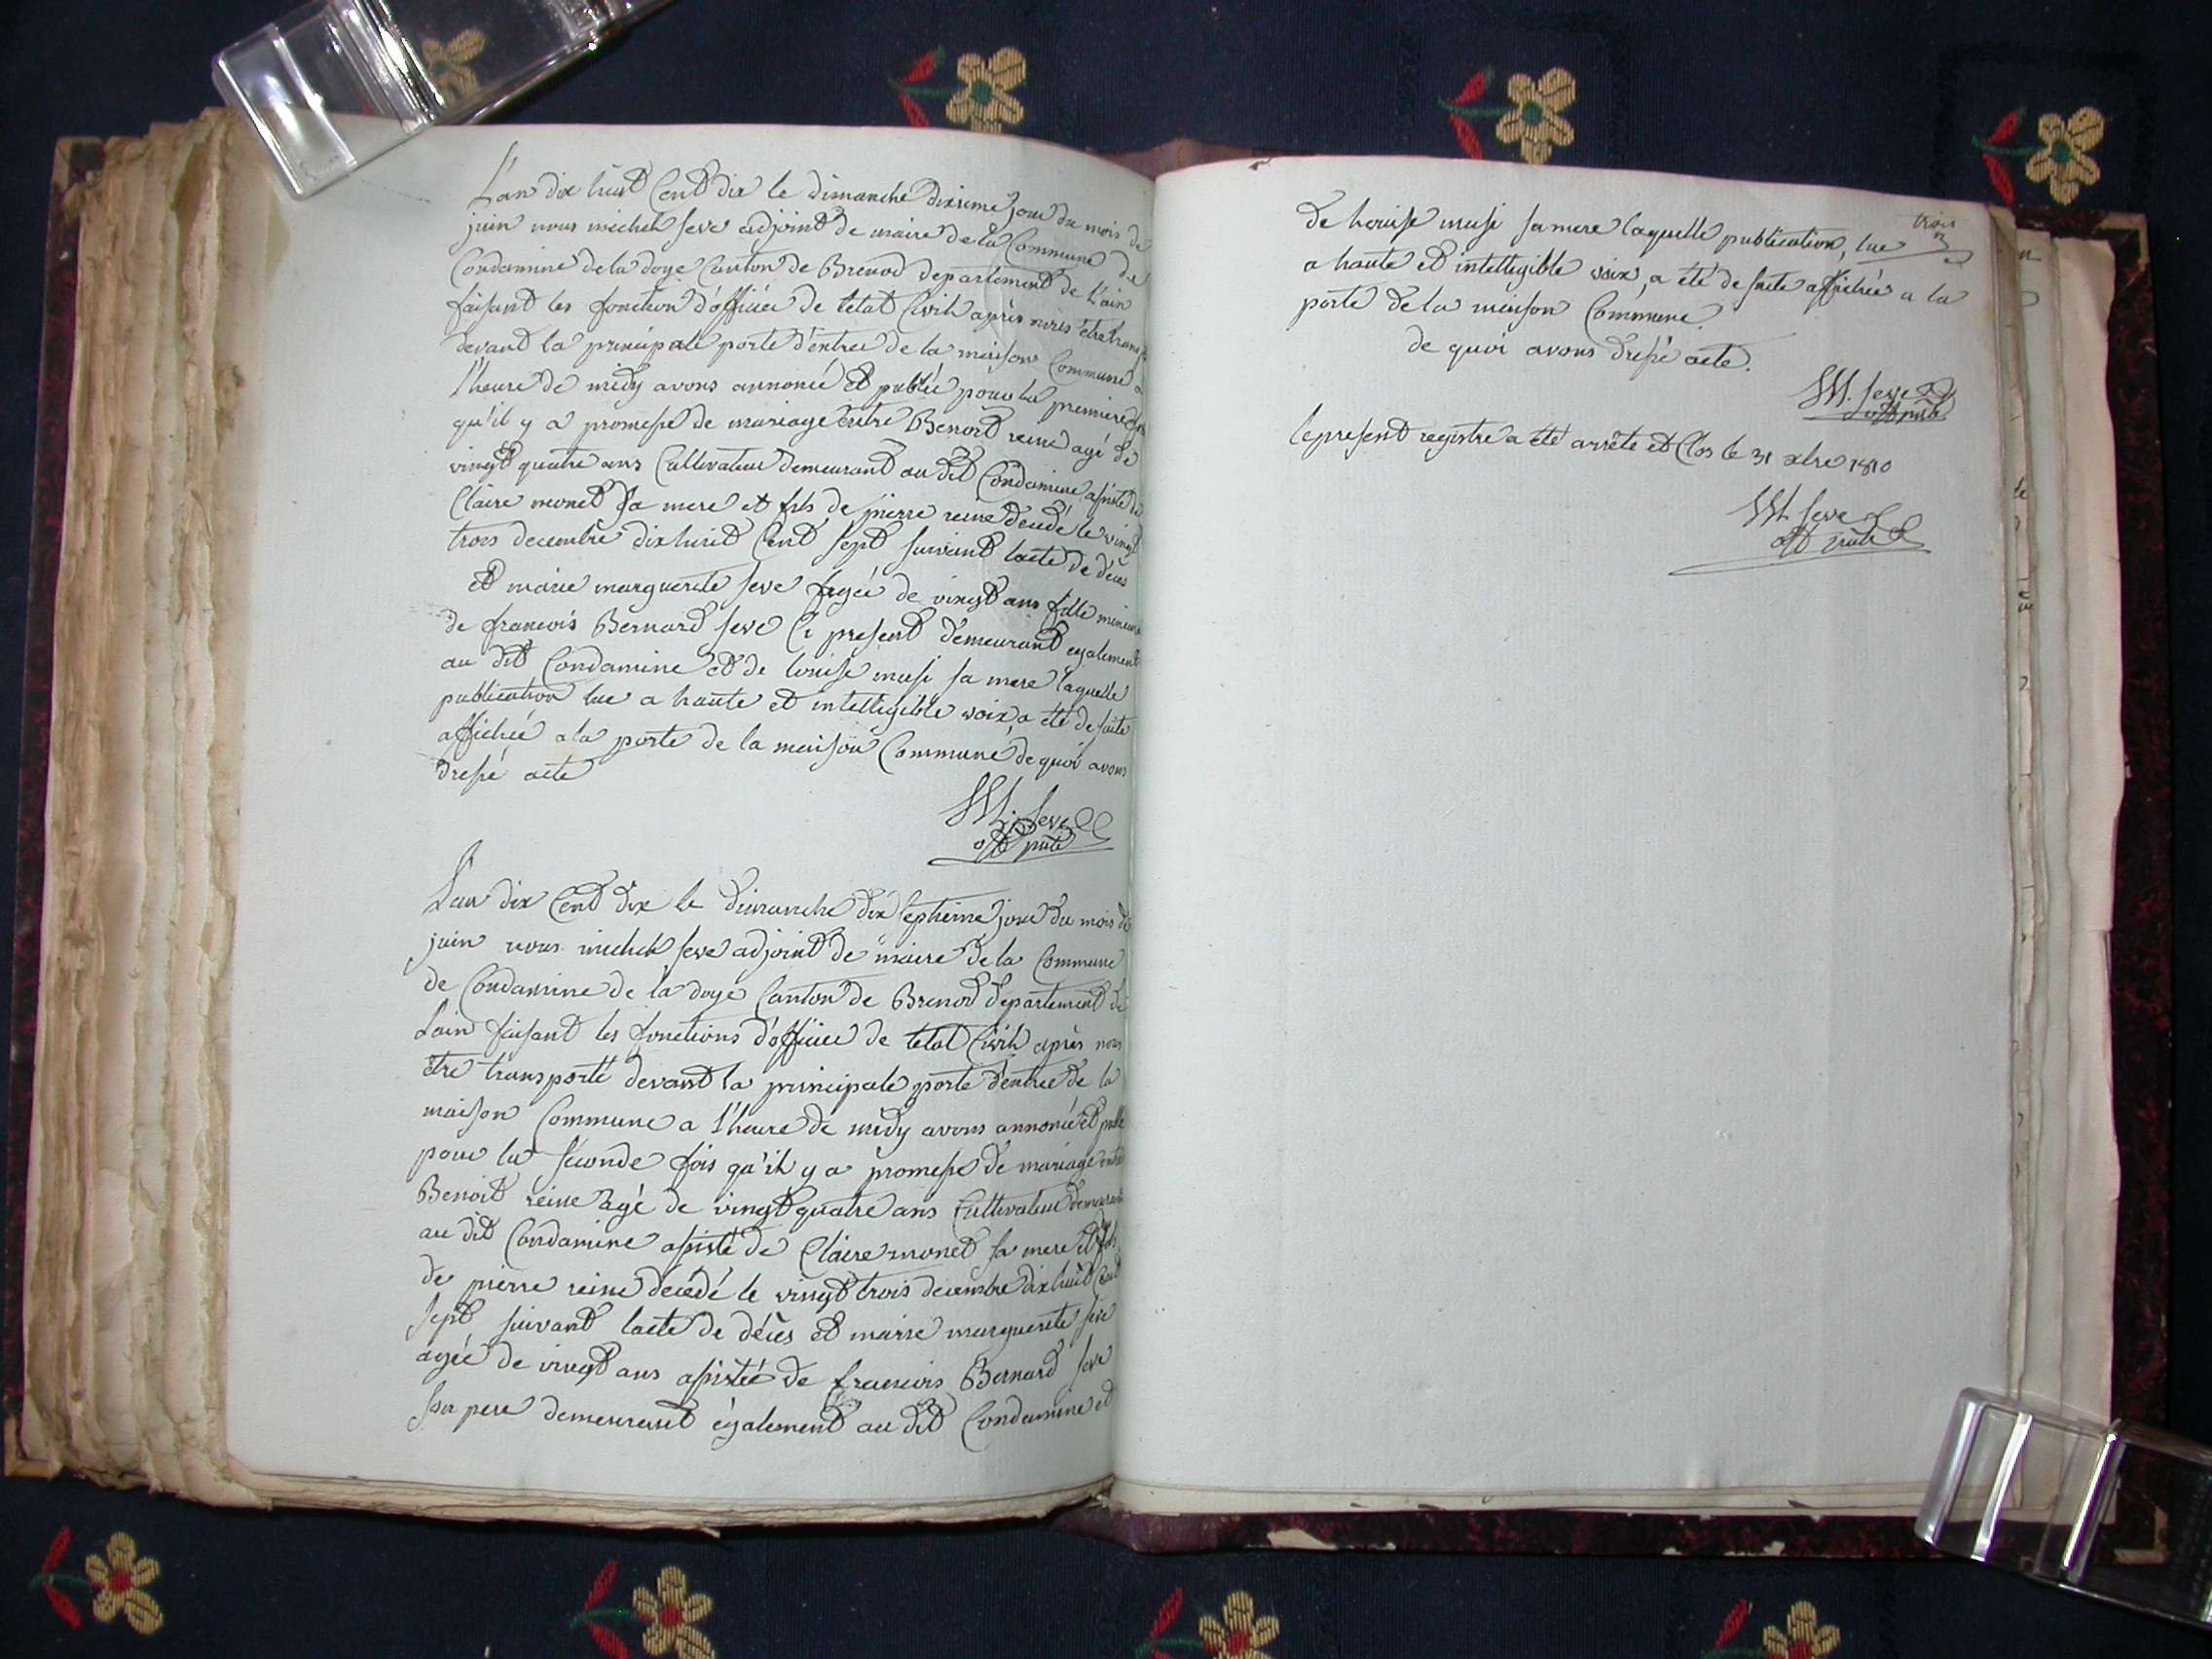 L'an dix huit Cent dix le dimanche dixieme jour du mois de
juin nous michel seve adjoint de maire de la Commune de
Condamine de la doye Canton de Brenod departement de L'ain
faisant les fonction d'officier de letat Civil après nous être
devant la principale porte d'entrée de la maison Commune a
l'heure de midy avons annoncé et publié pour la premiere fois
qu'il y a promesse de mariage entre Benoit reine agé de
vingt quatre ans Cultivateur demeurant au dit Condamine assisté de
Claire monet sa mere et fils de pierre reine décédé le vingt
trois decembre dix huit Cent sept suivant lacte de déces
et marie marguerite seve agée de vingt ans fille mineure
de francois Bernard seve Ci present demeurant egalement
au dit Condamine et de louise musi sa mere laquelle
publication lue a haute et intelligible voix a été de suite
affichée a la porte de la maison Commune de quoi avons
dressé acte
M. Seve
off pub
L'an dix Cent dix le dimanche dix septieme jour du mois de
juin nous michel seve adjoint de maire de la Commune
de Condamine de la doye Canton de Brenod departement de
Lain faisant les fonctions d'officier de letat Civil après nous
être transporté devant la principale porte d'entrée de la
maison Commune a l'heure de midy avons annoncé et
pour la seconde fois qu'il y a promesse de mariage entre
Benoit reine agé de vingt quatre ans Cultivateur demeurant
au dit Condamine assisté de Claire monet sa mere et fils
de pierre reine décédé le vingt trois decembre dix huit Cent
sept suivant lacte de déces et marie marguerite seve
agée de vingt ans assistée de francois Bernard seve
son pere demeurant également au dit Condamine et
trois
3
de louise musi sa mere laquelle publication, lue
a haute et intelligible voix, a été de suite affichée a la
porte de la maison Commune
de quoi avons dressé acte.
M. Seve
off pub
le present registre a été arrêté et Clos le 31 xbre 1810
M. Seve
off pub